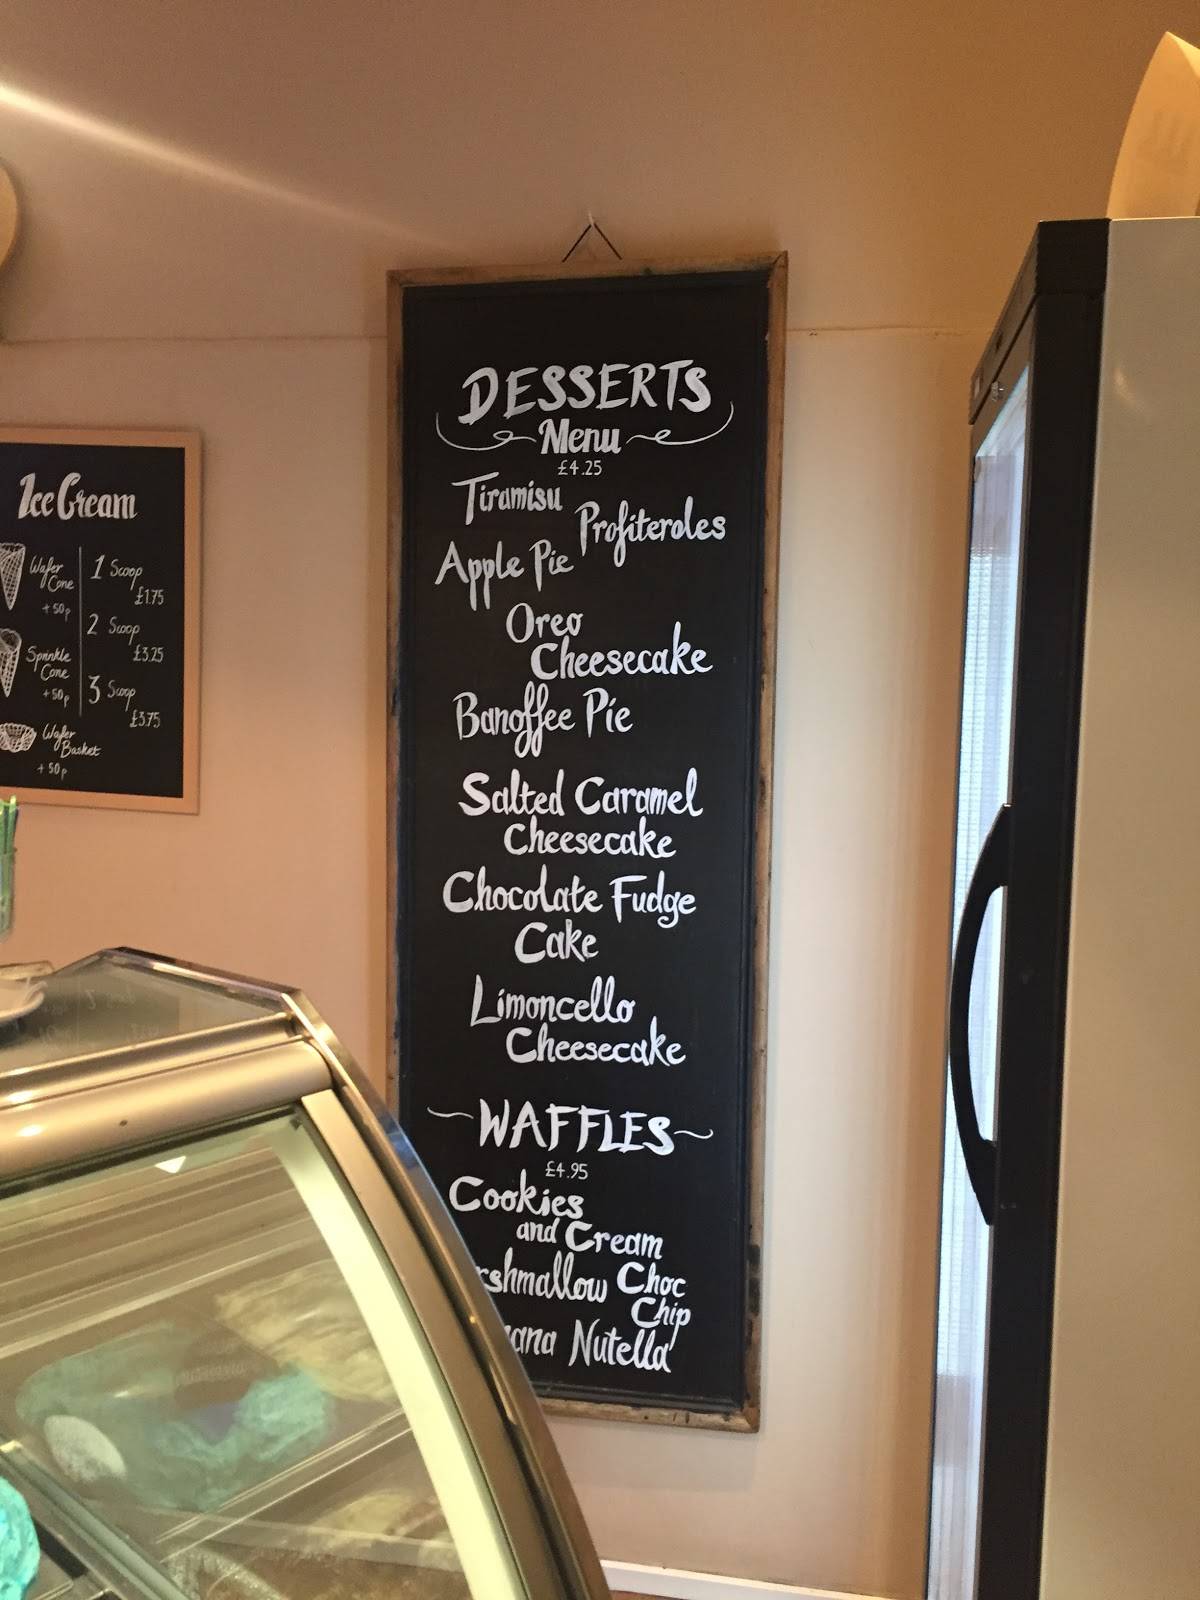 Ice Cream
Wafer
Cone
+50p
Sprinkle
Cone
+50p
Wafer
Basket
+50p
1 Scoop
£1.75
2 Scoop
£3.25
3 Scoop
£3.75
DESSERTS
Menu
£4.25
Tiramisu
Profiteroles
Apple Pie
Oreo
Cheesecake
Banoffee Pie
Salted Caramel
Cheesecake
Chocolate Fudge
Cake
Limoncello
Cheesecake
WAFFLES
£4.95
Cookies
and Cream
rshmallow Choc
Chip
ana Nutella